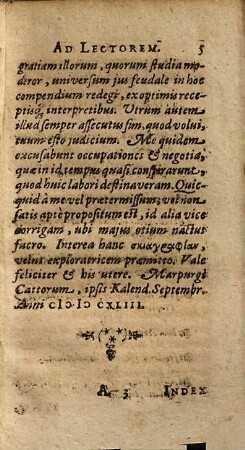 AD LECTOREM. 5
gratiam illorum, quorum studia mo-
deror, universum jus feudale in hoc
compendium redegi, ex optimis rece-
ptisq; interpretibus. Utrum autem
illud semper assecutus sim, quod volui,
tuum esto judicium. Me quidem
excusabunt occupationes & negotia,
quæ in id tempus quasi conspirarunt,
quod huic labori destinaveram. Quic-
quid à me vel prętermissum, vel non
satis aptè propositum est, id alia vice
corrigam, ubi majus otium nactus
fuero. Interea hanc σκιαγραφίαν,
velut exploratricem præmitto. Vale
feliciter & his utere. Marpurgi
Cattorum, ipsis Kalend. Septembr.
Anni CIↃ IↃ CXLIII.
A 3 INDEX